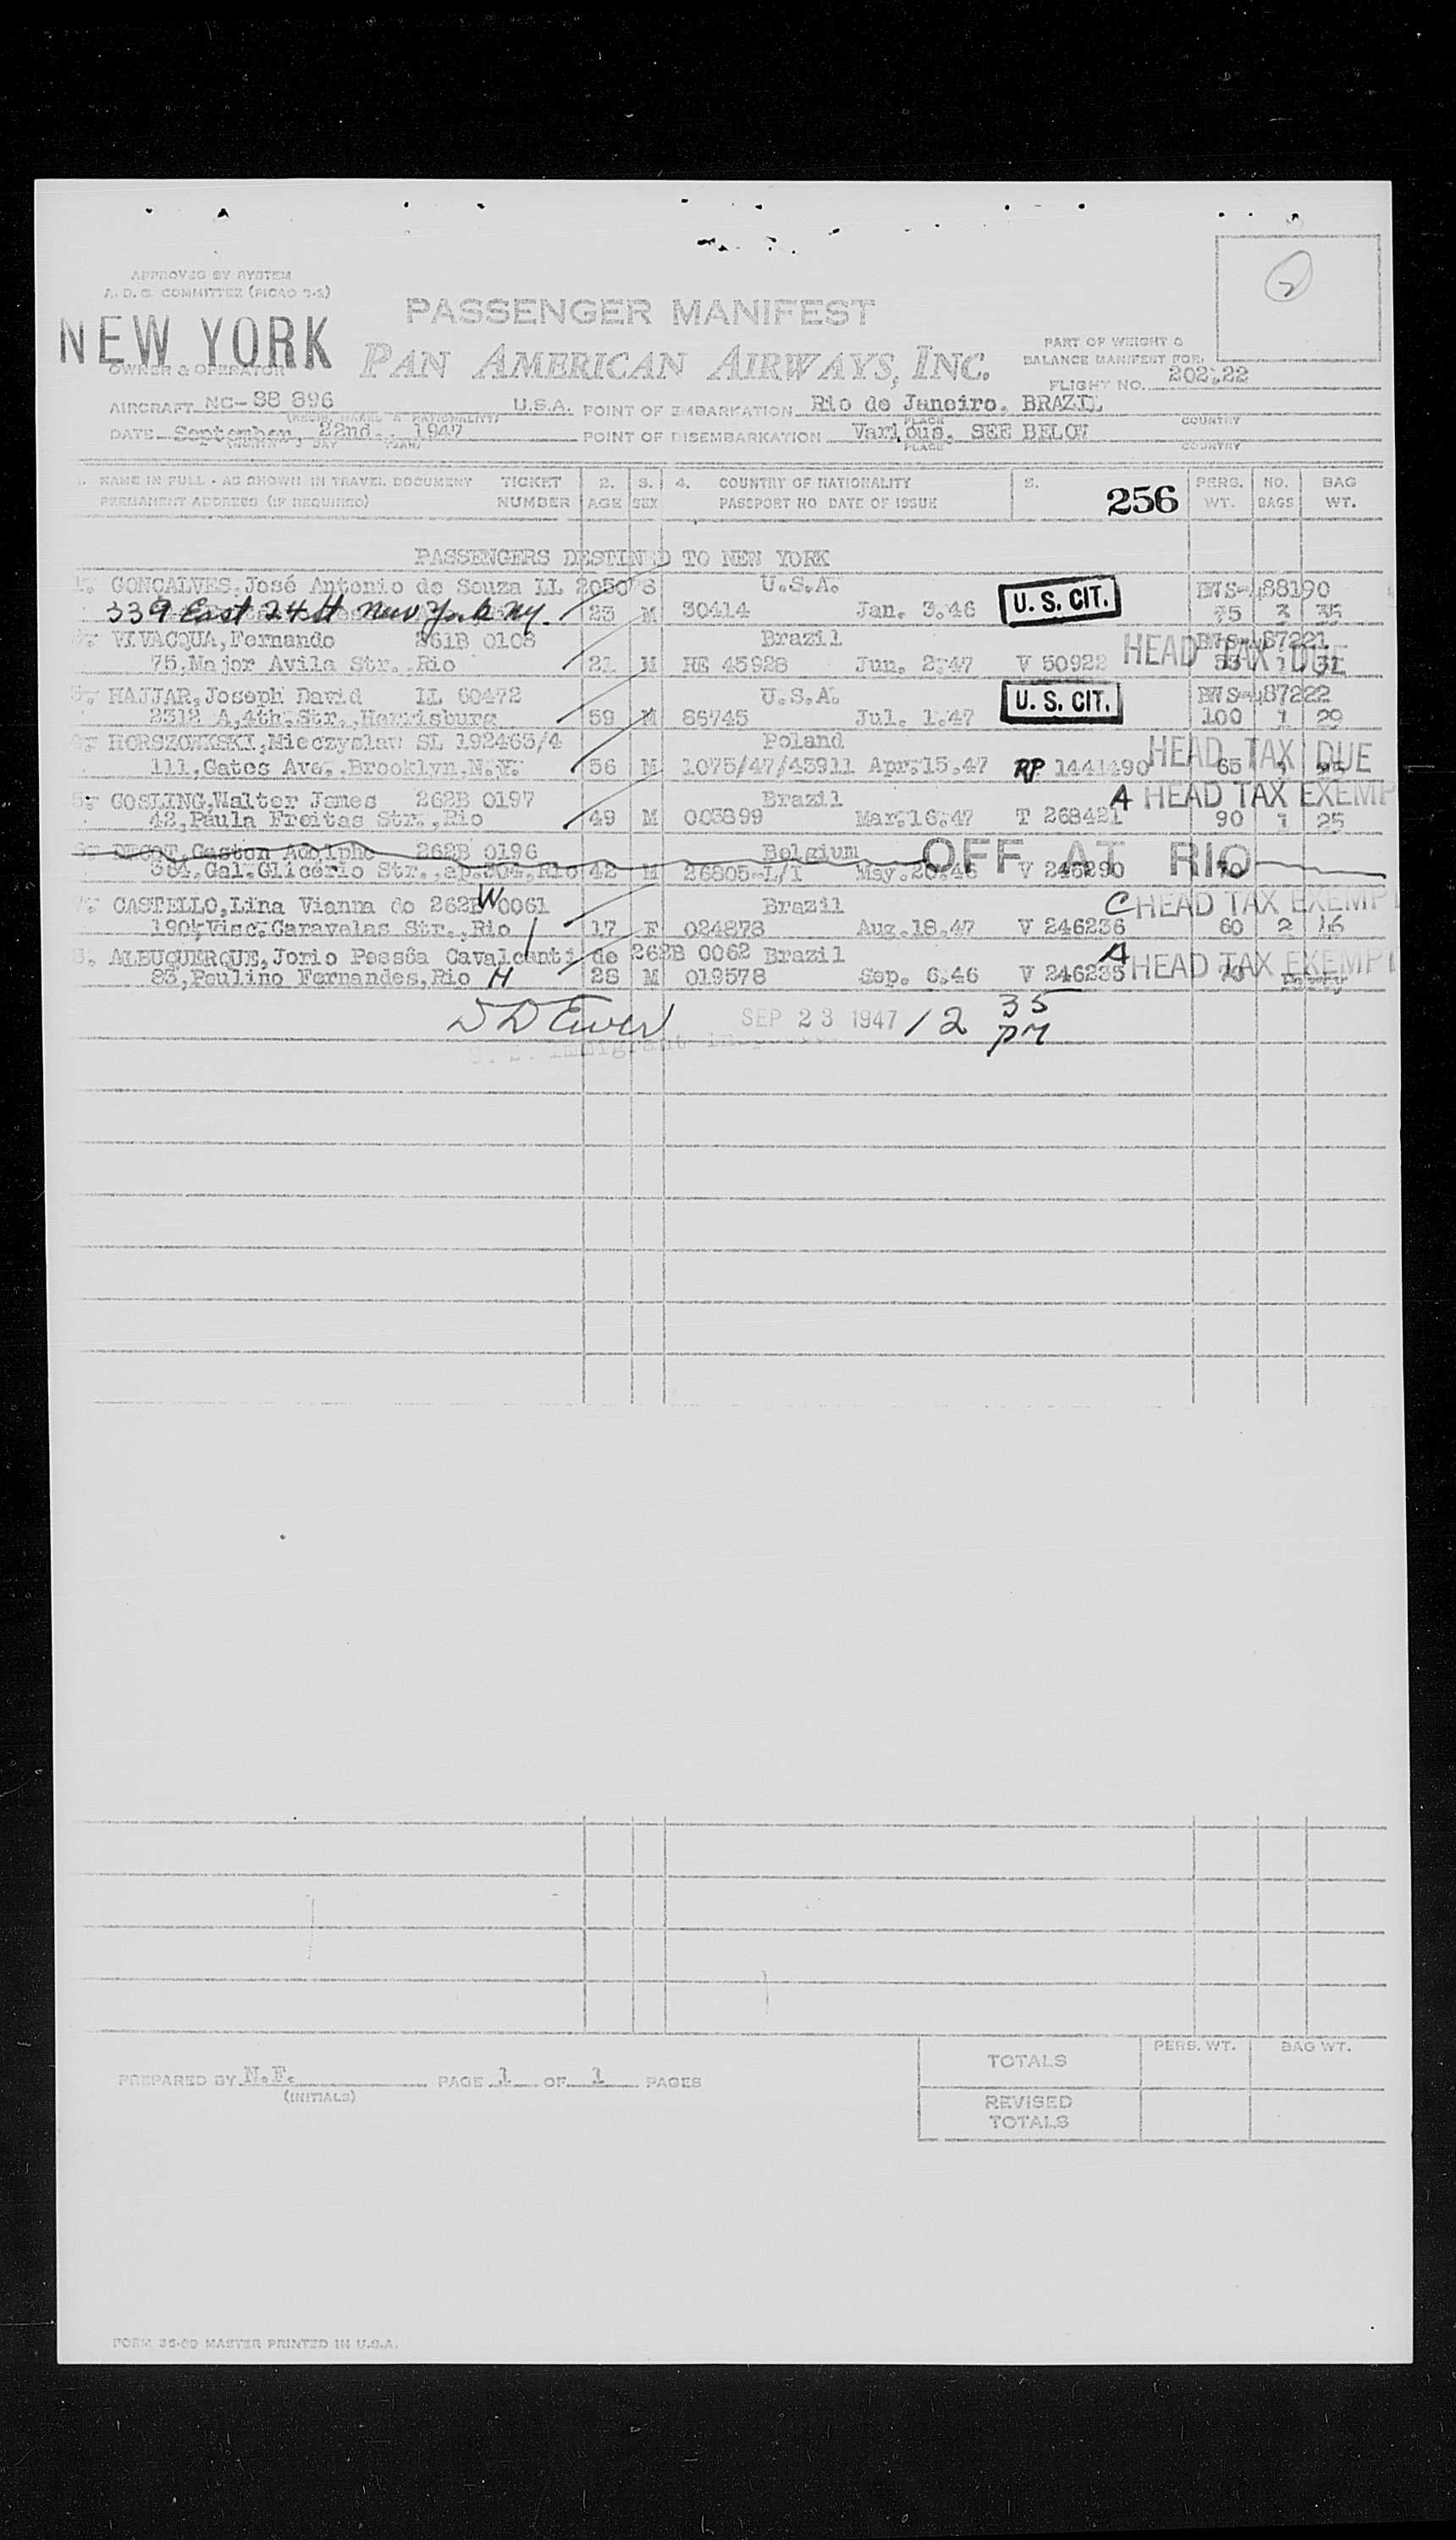 APPROVED BY SYSTEM
A. D. C. COMMITTEE (PICAO 9-2)
NEW YORK
PASSENGER MANIFEST
OWNER & OPERATOR PAN AMERICAN AIRWAYS, INC.
PART OF WEIGHT &
BALANCE MANIFEST FOR:
FLIGHT NO. 202.22
2
AIRCRAFT NC-88 896 U.S.A. POINT OF EMBARKATION Rio de Janeiro. BRAZIL
PLACE COUNTRY
DATE September, 22nd. 1947 POINT OF DISEMBARKATION Various, SEE BELOW
PLACE COUNTRY
1. NAME IN FULL - AS SHOWN IN TRAVEL DOCUMENT TICKET 2. 3. 4. COUNTRY OF NATIONALITY 5. PERS. NO. BAG
PERMANENT ADDRESS (IF REQUIRED) NUMBER AGE SEX PASSPORT NO DATE OF ISSUE 256 WT. BAGS WT.
PASSENGERS DESTINED TO NEW YORK
1. GONÇALVES, José Antonio de Souza IL 2050 U.S.A. U. S. CIT. 88190
339 East 24 St New York NY. 23 M 30414 Jan. 3.46 75 3 35
2. VIVACQUA, Fernando 261B 0108 Brazil HEAD TAX DUE 87221
75, Major Avila Str., Rio 21 M RE 45928 Jun. 2.47 V 50922 31
3. HAJJAR, Joseph David IL 60472 U.S.A. U. S. CIT. 87222
2312 A, 4th. Str., Harrisburg 59 M 86745 Jul. 1.47 100 1 29
4. HORSZOWKSKI, Mieczyslaw SL 192463/4 Poland HEAD TAX DUE
111, Gates Ave., Brooklyn. N.Y. 56 M 1075/47/43911 Apr.15.47 RP 1441490 65
5. GOSLING, Walter James 262B 0197 Brazil A HEAD TAX EXEMP
42, Paula Freitas Str., Rio 49 M 003899 Mar.16.47 T 268421 90 1 25
6. DECOT, Gaston Adolphe 262B 0196 Belgium OFF AT RIO
384, Gal. Glicério Str., ap.504, Rio 42 M 26805-L/I May.20.46 V 246290 70
7. CASTELLO, Lina Vianna do 262B W 0061 Brazil C HEAD TAX EXEMPT
190, Visc. Caravelas Str., Rio 17 F 024873 Aug.18.47 V 246236 60 2 46
8. ALBUQUERQUE, Jorio Pessôa Cavalcanti de 262B 0062 Brazil A HEAD TAX EXEMPT
83, Paulino Fernandes, Rio H 28 M 019578 Sep. 6.46 V 246235 70
SEP 23 1947 12 35 PM
U. S. Immigrant Inspector
PREPARED BY N.F. PAGE 1 OF 1 PAGES
(INITIALS)
TOTALS PERS. WT. BAG WT.
REVISED
TOTALS
FORM 36-80 MASTER PRINTED IN U.S.A.